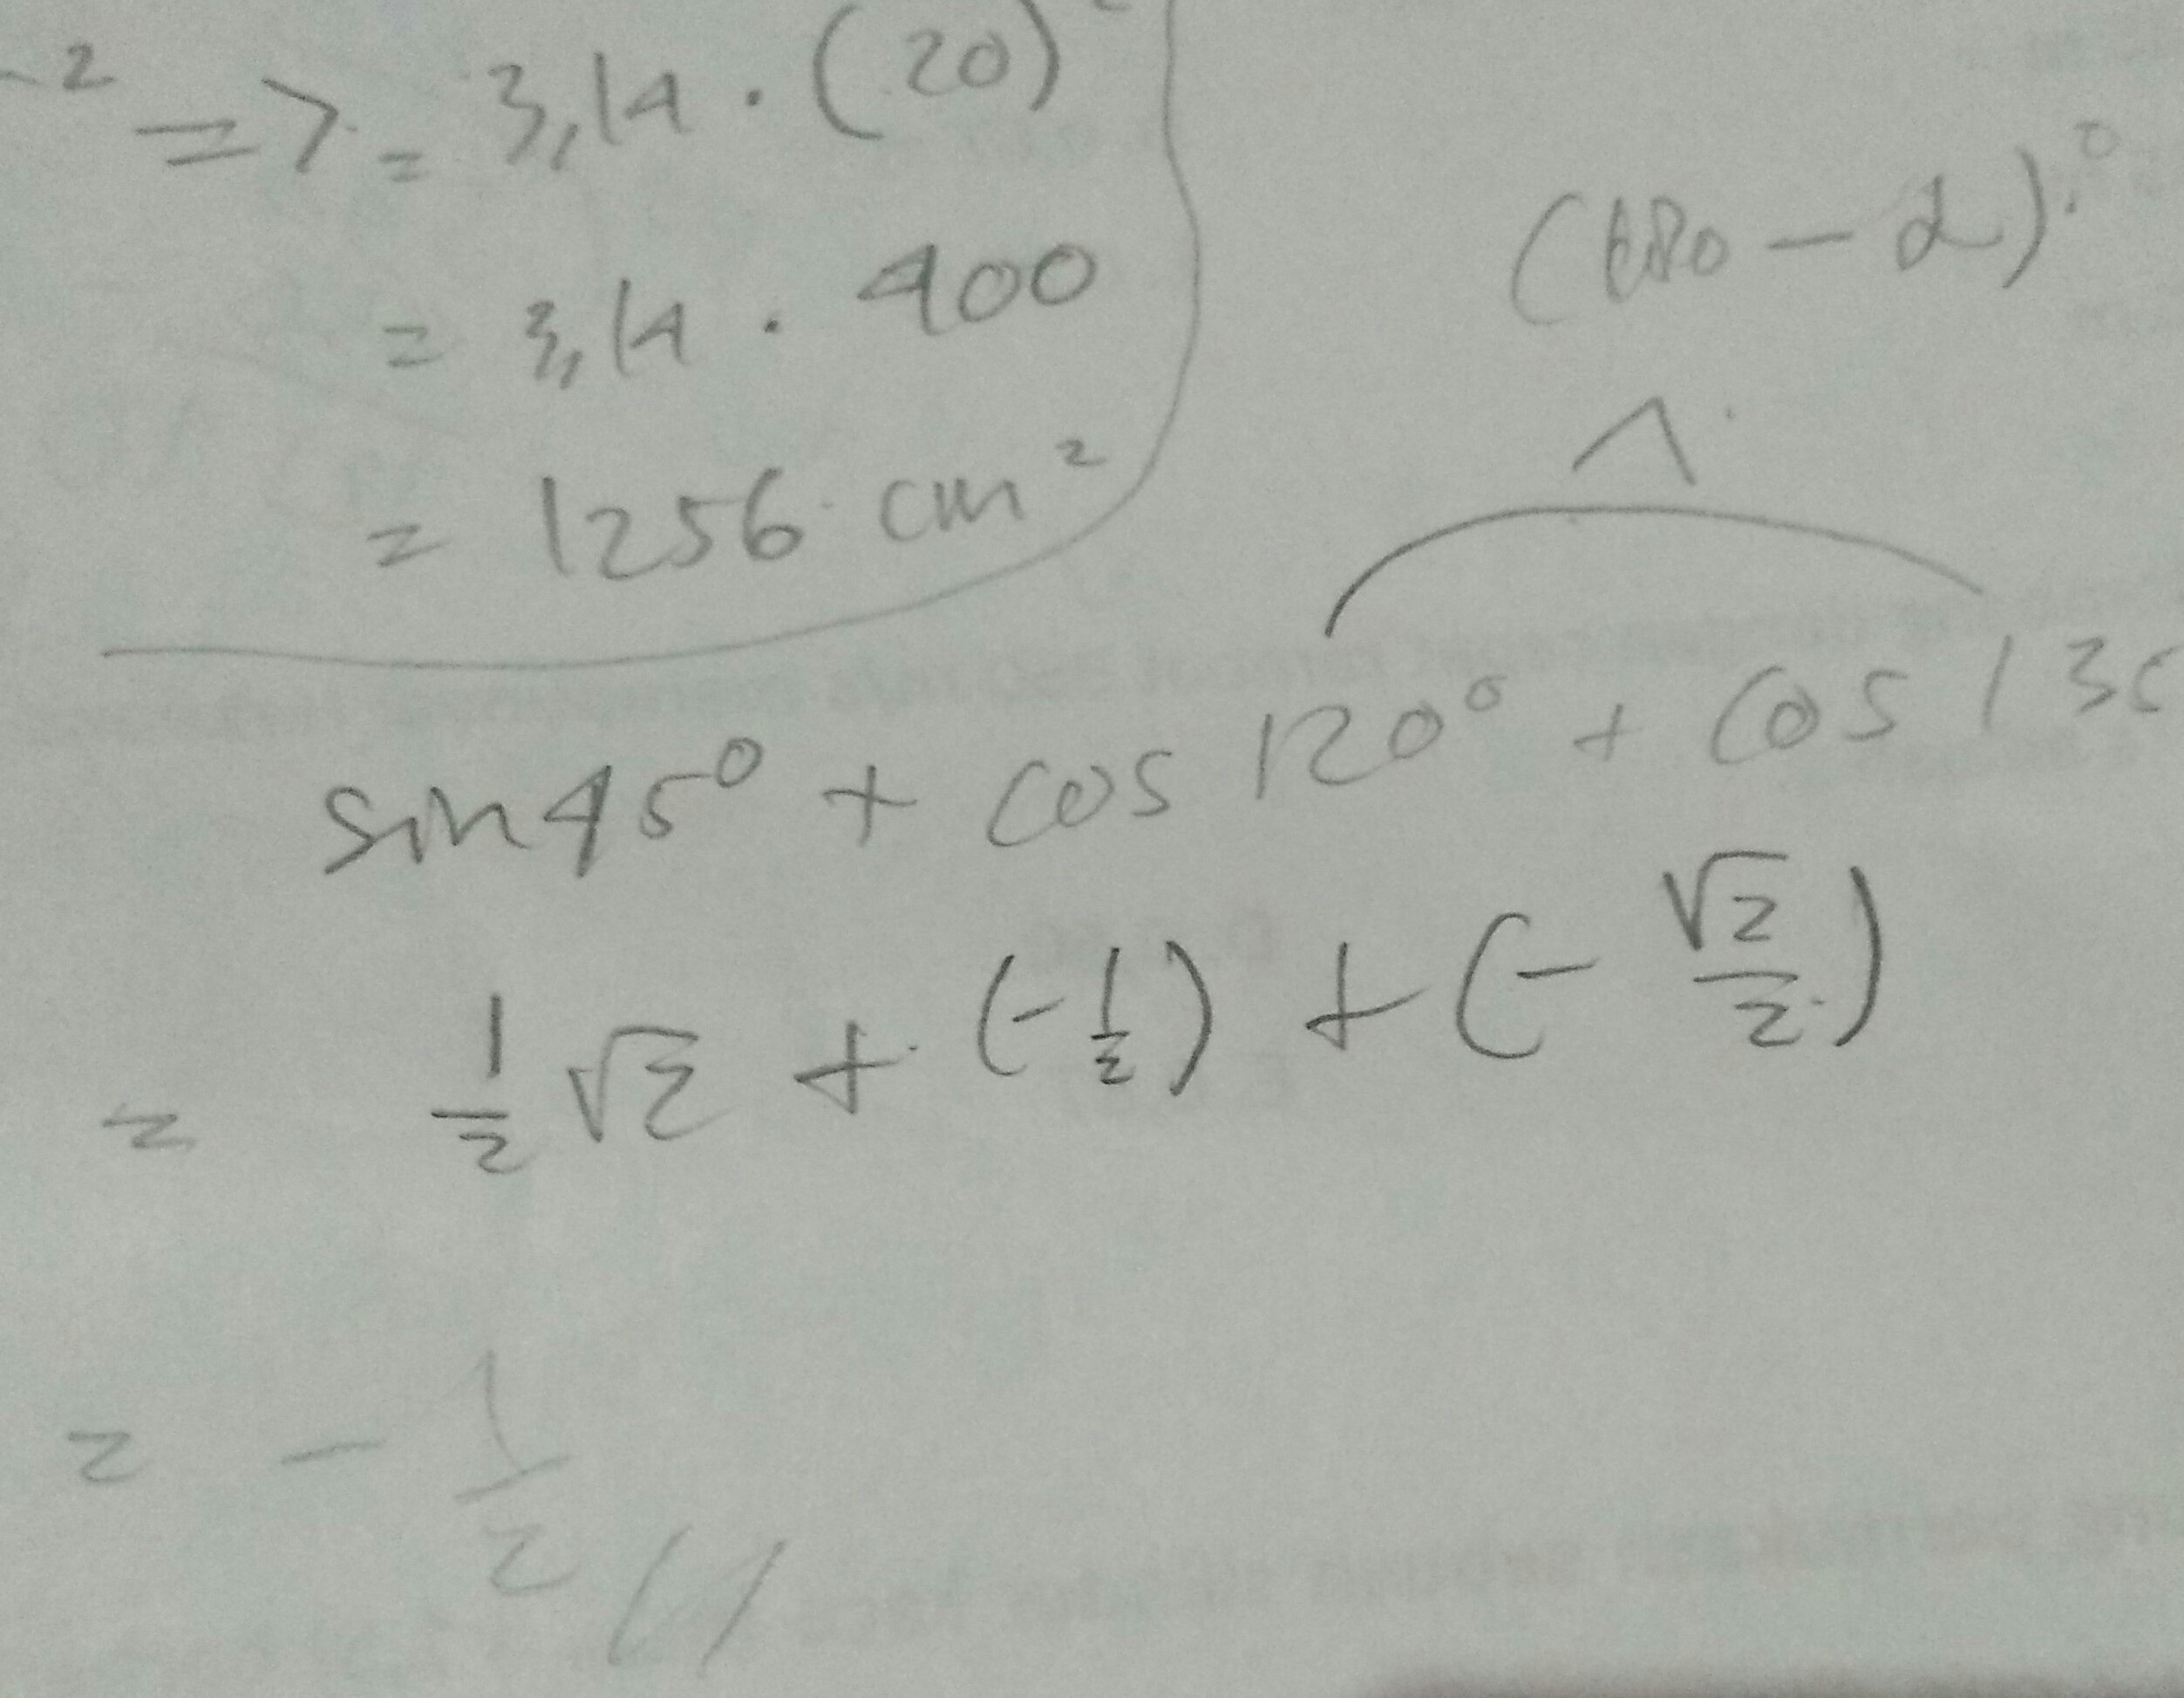 ² => = 3,14 . (20)²
= 3,14 . 400
= 1256 cm²
(180 - α)°
sin 45° + cos 120° + cos 135
= 1/2 √2 + (-1/2) + (- √2/2)
= - 1/2 //